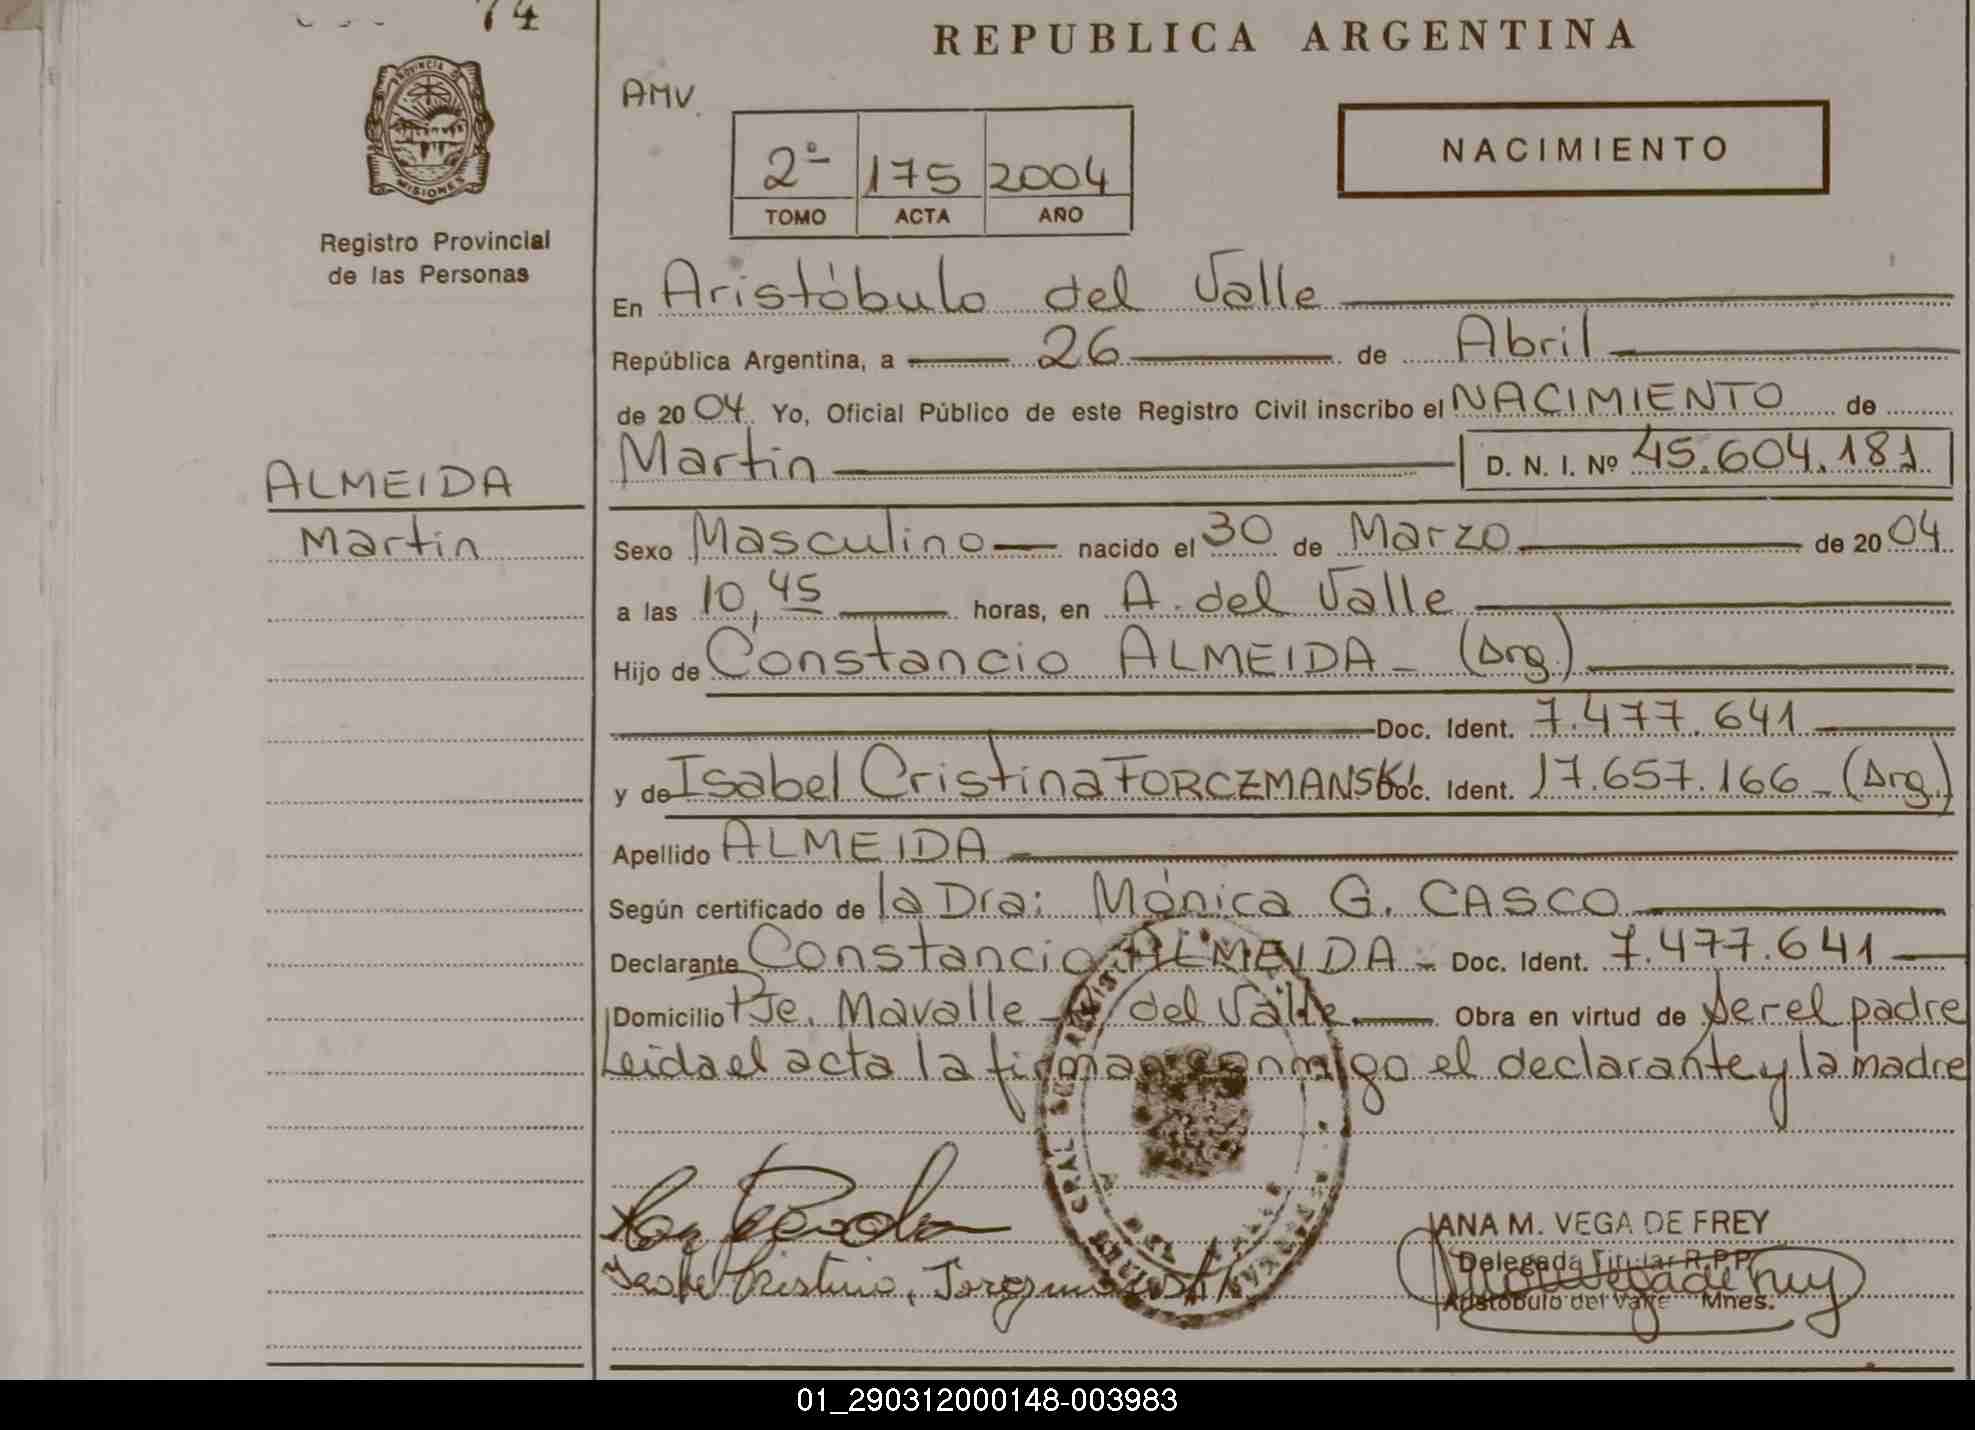 74
REPUBLICA ARGENTINA
PROVINCIA DE
MISIONES
AMV.
2º 175 2004
TOMO ACTA AÑO
NACIMIENTO
Registro Provincial
de las Personas
En Aristóbulo del Valle
República Argentina, a 26 de Abril
de 2004. Yo, Oficial Público de este Registro Civil inscribo el NACIMIENTO de
Martin D. N. I. Nº 45.604.181
ALMEIDA
Martin
Sexo Masculino nacido el 30 de Marzo de 2004
a las 10,45 horas, en A. del Valle
Hijo de Constancio ALMEIDA - (Arg.)
Doc. Ident. 7.477.641
y de Isabel Cristina FORCZMANSKI Doc. Ident. 17.657.166 - (Arg.)
Apellido ALMEIDA
Según certificado de la Dra: Mónica G. CASCO
Declarante Constancio ALMEIDA - Doc. Ident. 7.477.641
Domicilio Pje. Mavalle - A. del Valle. Obra en virtud de Ser el padre
Leida el acta la firman conmigo el declarante y la madre
IANA M. VEGA DE FREY
Delegada Titular R.P.P.
Aristóbulo del Valle Mnes.
01_290312000148-003983